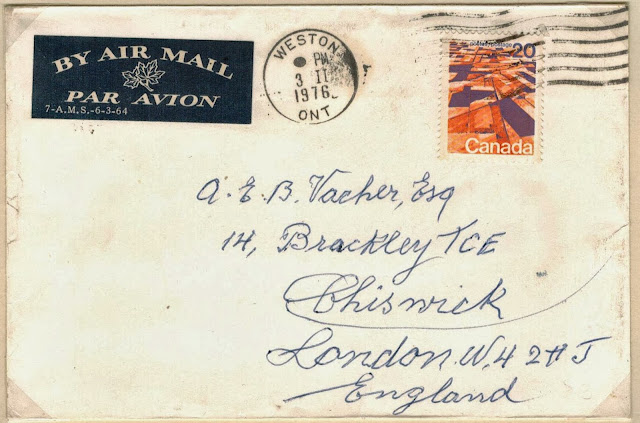 BY AIR MAIL
PAR AVION
7-A.M.S.-6-3-64
WESTON
PM
3 II
1976
ONT
20
Canada
A. E. B. Vacher, Esq
14, Brackley TCE
Chiswick
London. W.4 2HJ
England